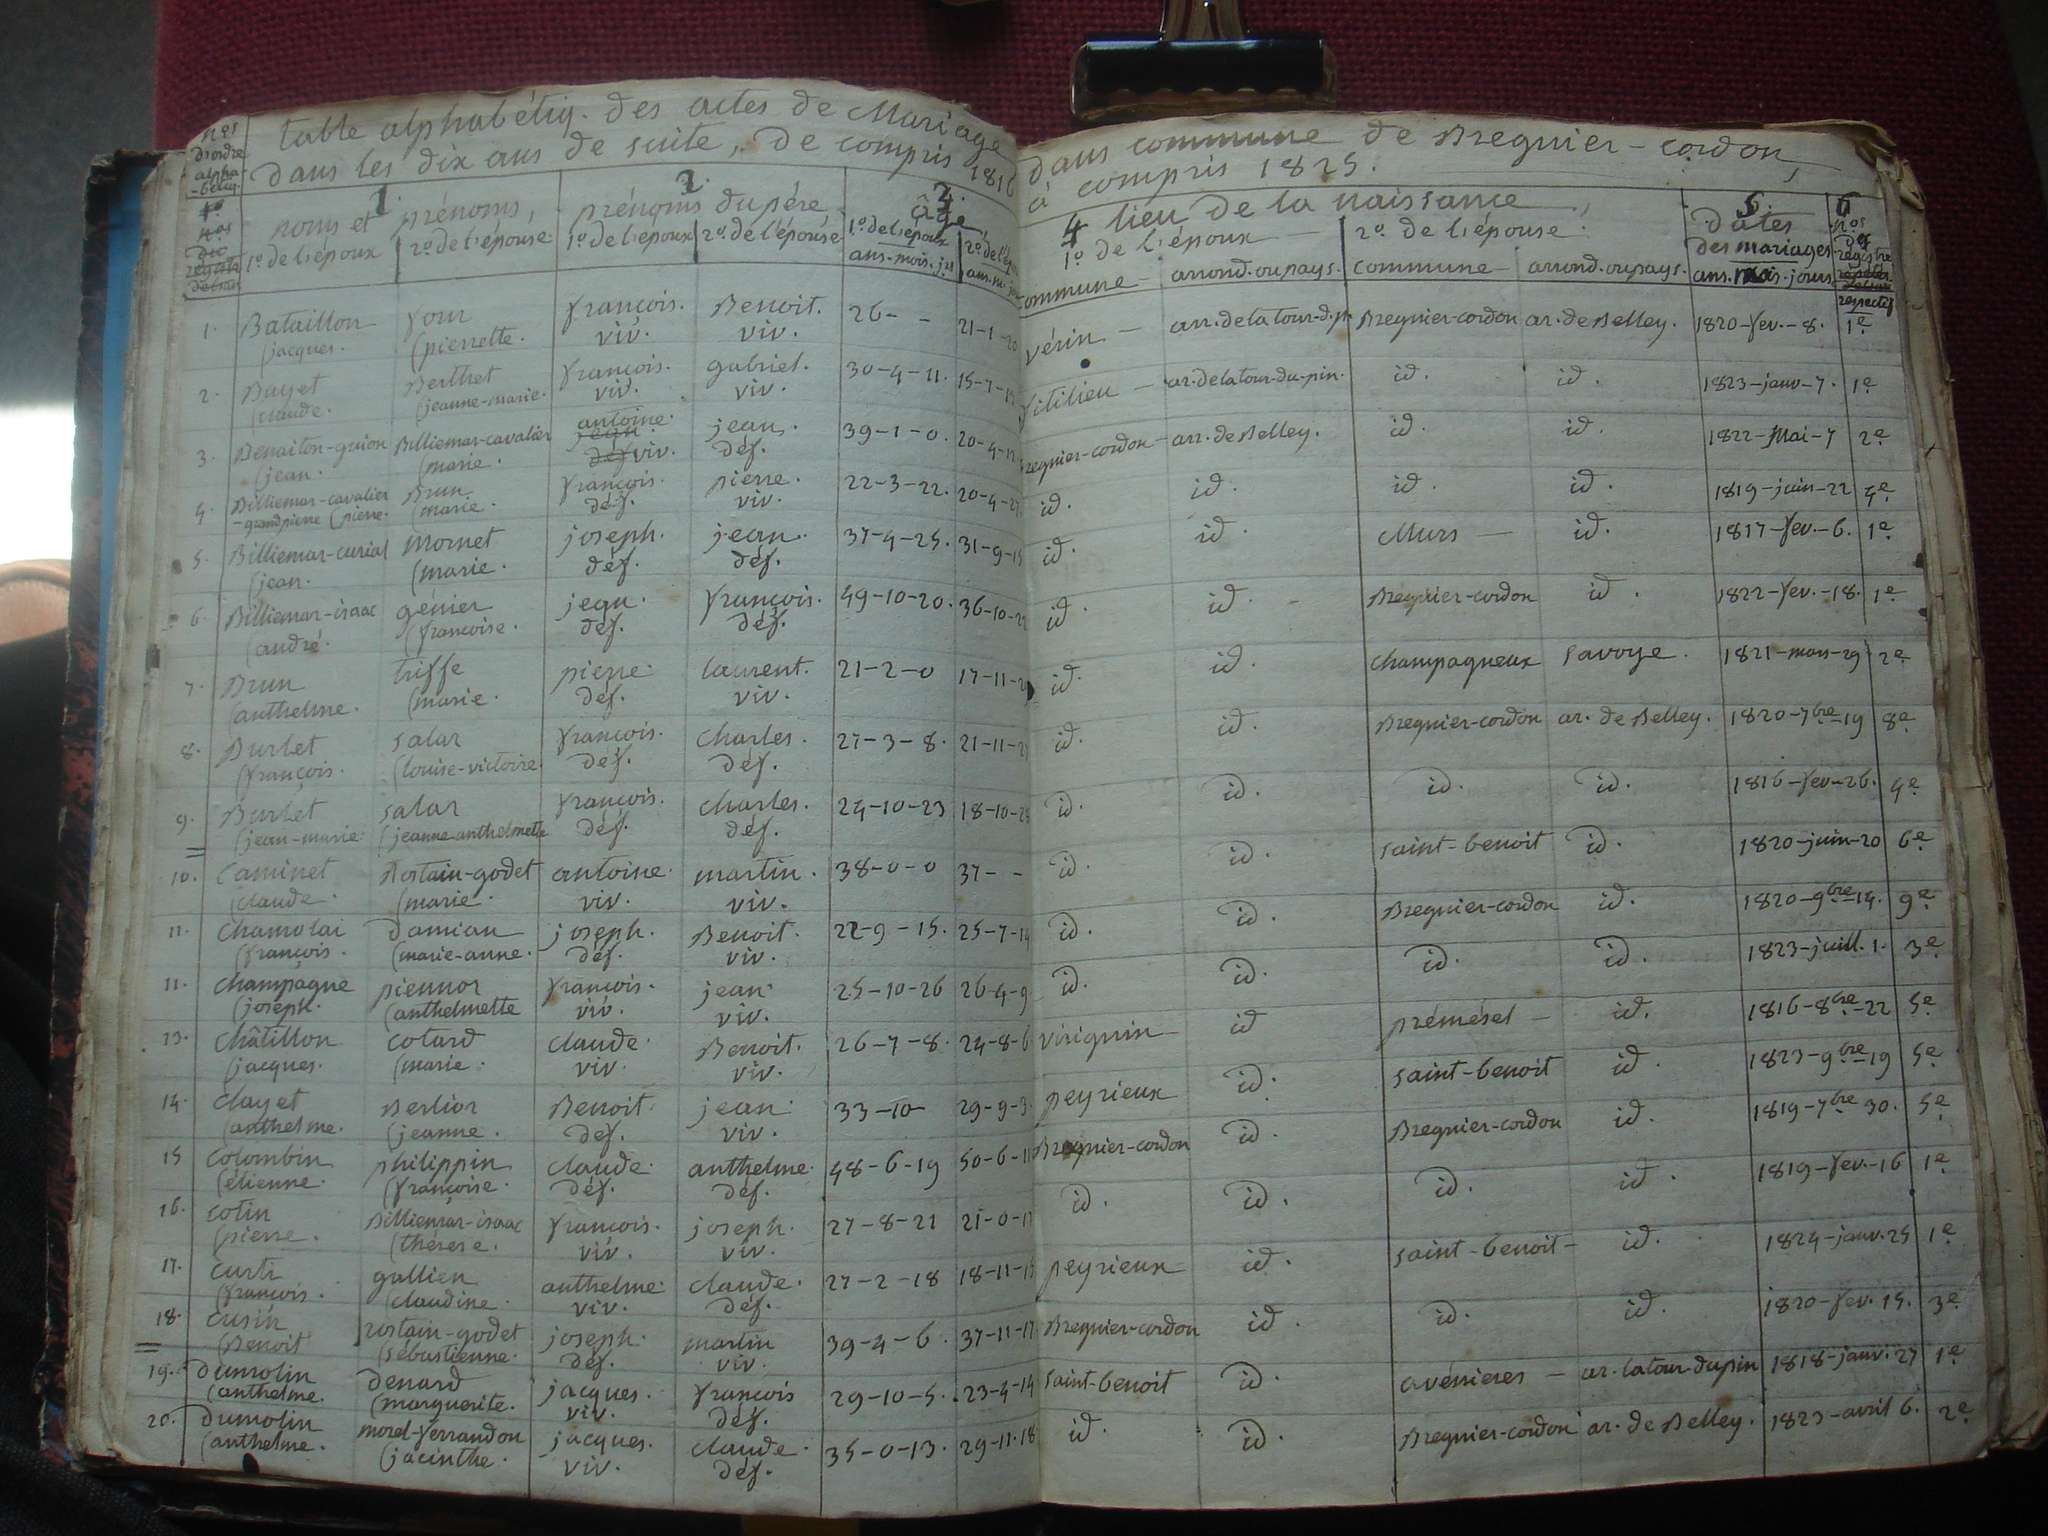 nos d'ordre alpha-bétiq.
table alphabétiq. des actes de Mariage dans commune de Bregnier-cordon,
dans les dix ans de suite, de compris 1816 à compris 1825.
1. 2. 3. 4 lieu de la naissance, 5. 6
noms et prénoms, prénoms du père âge dates nos
1º de l'époux 2º de l'épouse 1º de l'époux 2º de l'épouse 1º de l'époux 1º de l'époux 2º de l'épouse des mariages des registre
ans-mois-jrs commune arrond. ou pays. commune arrond. ou pays. ans. mois-jours respectif
1. Bataillon your françois. Benoit. 26- - 21-1-20 vérin arr. de la tour-d.p. Bregnier-cordon ar. de Belley. 1820-fev.-8. 1e
(jacques. (pierrette. viv. viv.
2. Buyet Berthet françois. gabriel. 30-4-11. 15-7- fitilieu ar. de la tour-du-pin. id. id. 1823-janv-7. 1e
(claude. (jeanne-marie. viv. viv.
3. Benaiton-guion Billiemar-cavalier antoine. jean. 39-1-0. 20-4- Bregnier-cordon arr. de Belley. id. id. 1822-Mai-7 2e
(jean. (marie. viv. déf.
4. Billiemar-cavalier Brun françois. pierre. 22-3-22. 20-4-27 id. id. id. id. 1819-juin-22 4e
-grandpierre (pierre. (marie. déf. viv.
5. Billiemar-curial Mornet joseph. jean. 37-4-25. 31-9-15 id. id. Murs id. 1817-fev.-6. 1e
(jean. (marie. déf. déf.
6. Billiemar-isaac génier jean. françois. 49-10-20. 36-10-22 id. id. Bregnier-cordon id. 1822-fev.-18. 1e
(andré. (françoise. déf. déf.
7. Brun triffe pierre. laurent. 21-2-0 17-11- id. id. champagneux savoye. 1821-mars-29 2e
(anthelme. (marie. déf. viv.
8. Burlet salar françois. charles. 27-3-8. 21-11-2 id. id. Bregnier-cordon ar. de Belley. 1820-7bre-19 8e
(françois. (louise-victoire. déf. déf.
9. Burlet salar françois. charles. 24-10-23 18-10-25 id. id. id. id. 1816-fev-26. 4e
(jean-marie. (jeanne-anthelmette déf. déf.
10. Caminet Rostain-godet antoine. martin. 38-0-0 37- - id. id. saint-benoit id. 1820-juin-20 6e
(claude. (marie. viv. viv.
11. Chamolai damian joseph. Benoit. 22-9-15. 25-7-14 id. id. Bregnier-cordon id. 1820-9bre-14. 9e
(françois. (marie-anne. déf. viv.
11. champagne piennor françois. jean. 25-10-26 26-4-9 id. id. id. id. 1823-juill. 1. 3e
(joseph. (anthelmette viv. viv.
13. châtillon cotard claude. Benoit. 26-7-8. 24-8-6 virignin id prémésel id. 1816-8bre-22 5e
(jacques. (marie. viv. viv.
14. clayet Berlior Benoit. jean. 33-10- 29-9-3. peyrieux id. saint-benoit id. 1823-9bre-19 5e
(anthelme. (jeanne. déf. viv.
15 colombin philippin claude. anthelme. 48-6-19 50-6-11 Bregnier-cordon id. Bregnier-cordon id. 1819-7bre 30. 5e
(étienne. (françoise. déf. déf.
16. cotin Billiemar-isaac françois. joseph. 27-8-21 21-0-17 id. id. id. id. 1819-fev.-16 1e
(pierre. (thérese. viv. viv.
17. curti gallien anthelme. claude. 27-2-18 18-11-15 peyrieux id. saint-benoit id. 1824-janv. 25 1e
(françois. (claudine. viv. déf.
18. cusin rostain-godet joseph. martin 39-4-6. 37-11-17 Bregnier-cordon id. id. id. 1820-fev. 15. 3e
(Benoit (sébastienne. déf. viv.
19. dumolin denard jacques. françois 29-10-5. 23-4-14 saint-benoit id. avénieres ar. latour-dupin 1818-janv. 27 1e
(anthelme. (marguerite. viv. déf.
20. dumolin morel-ferrandon jacques. claude. 35-0-13. 29-11-18 id. id. Bregnier-cordon ar. de Belley. 1823-avril 6. 2e
(anthelme. (jacinthe. viv. déf.